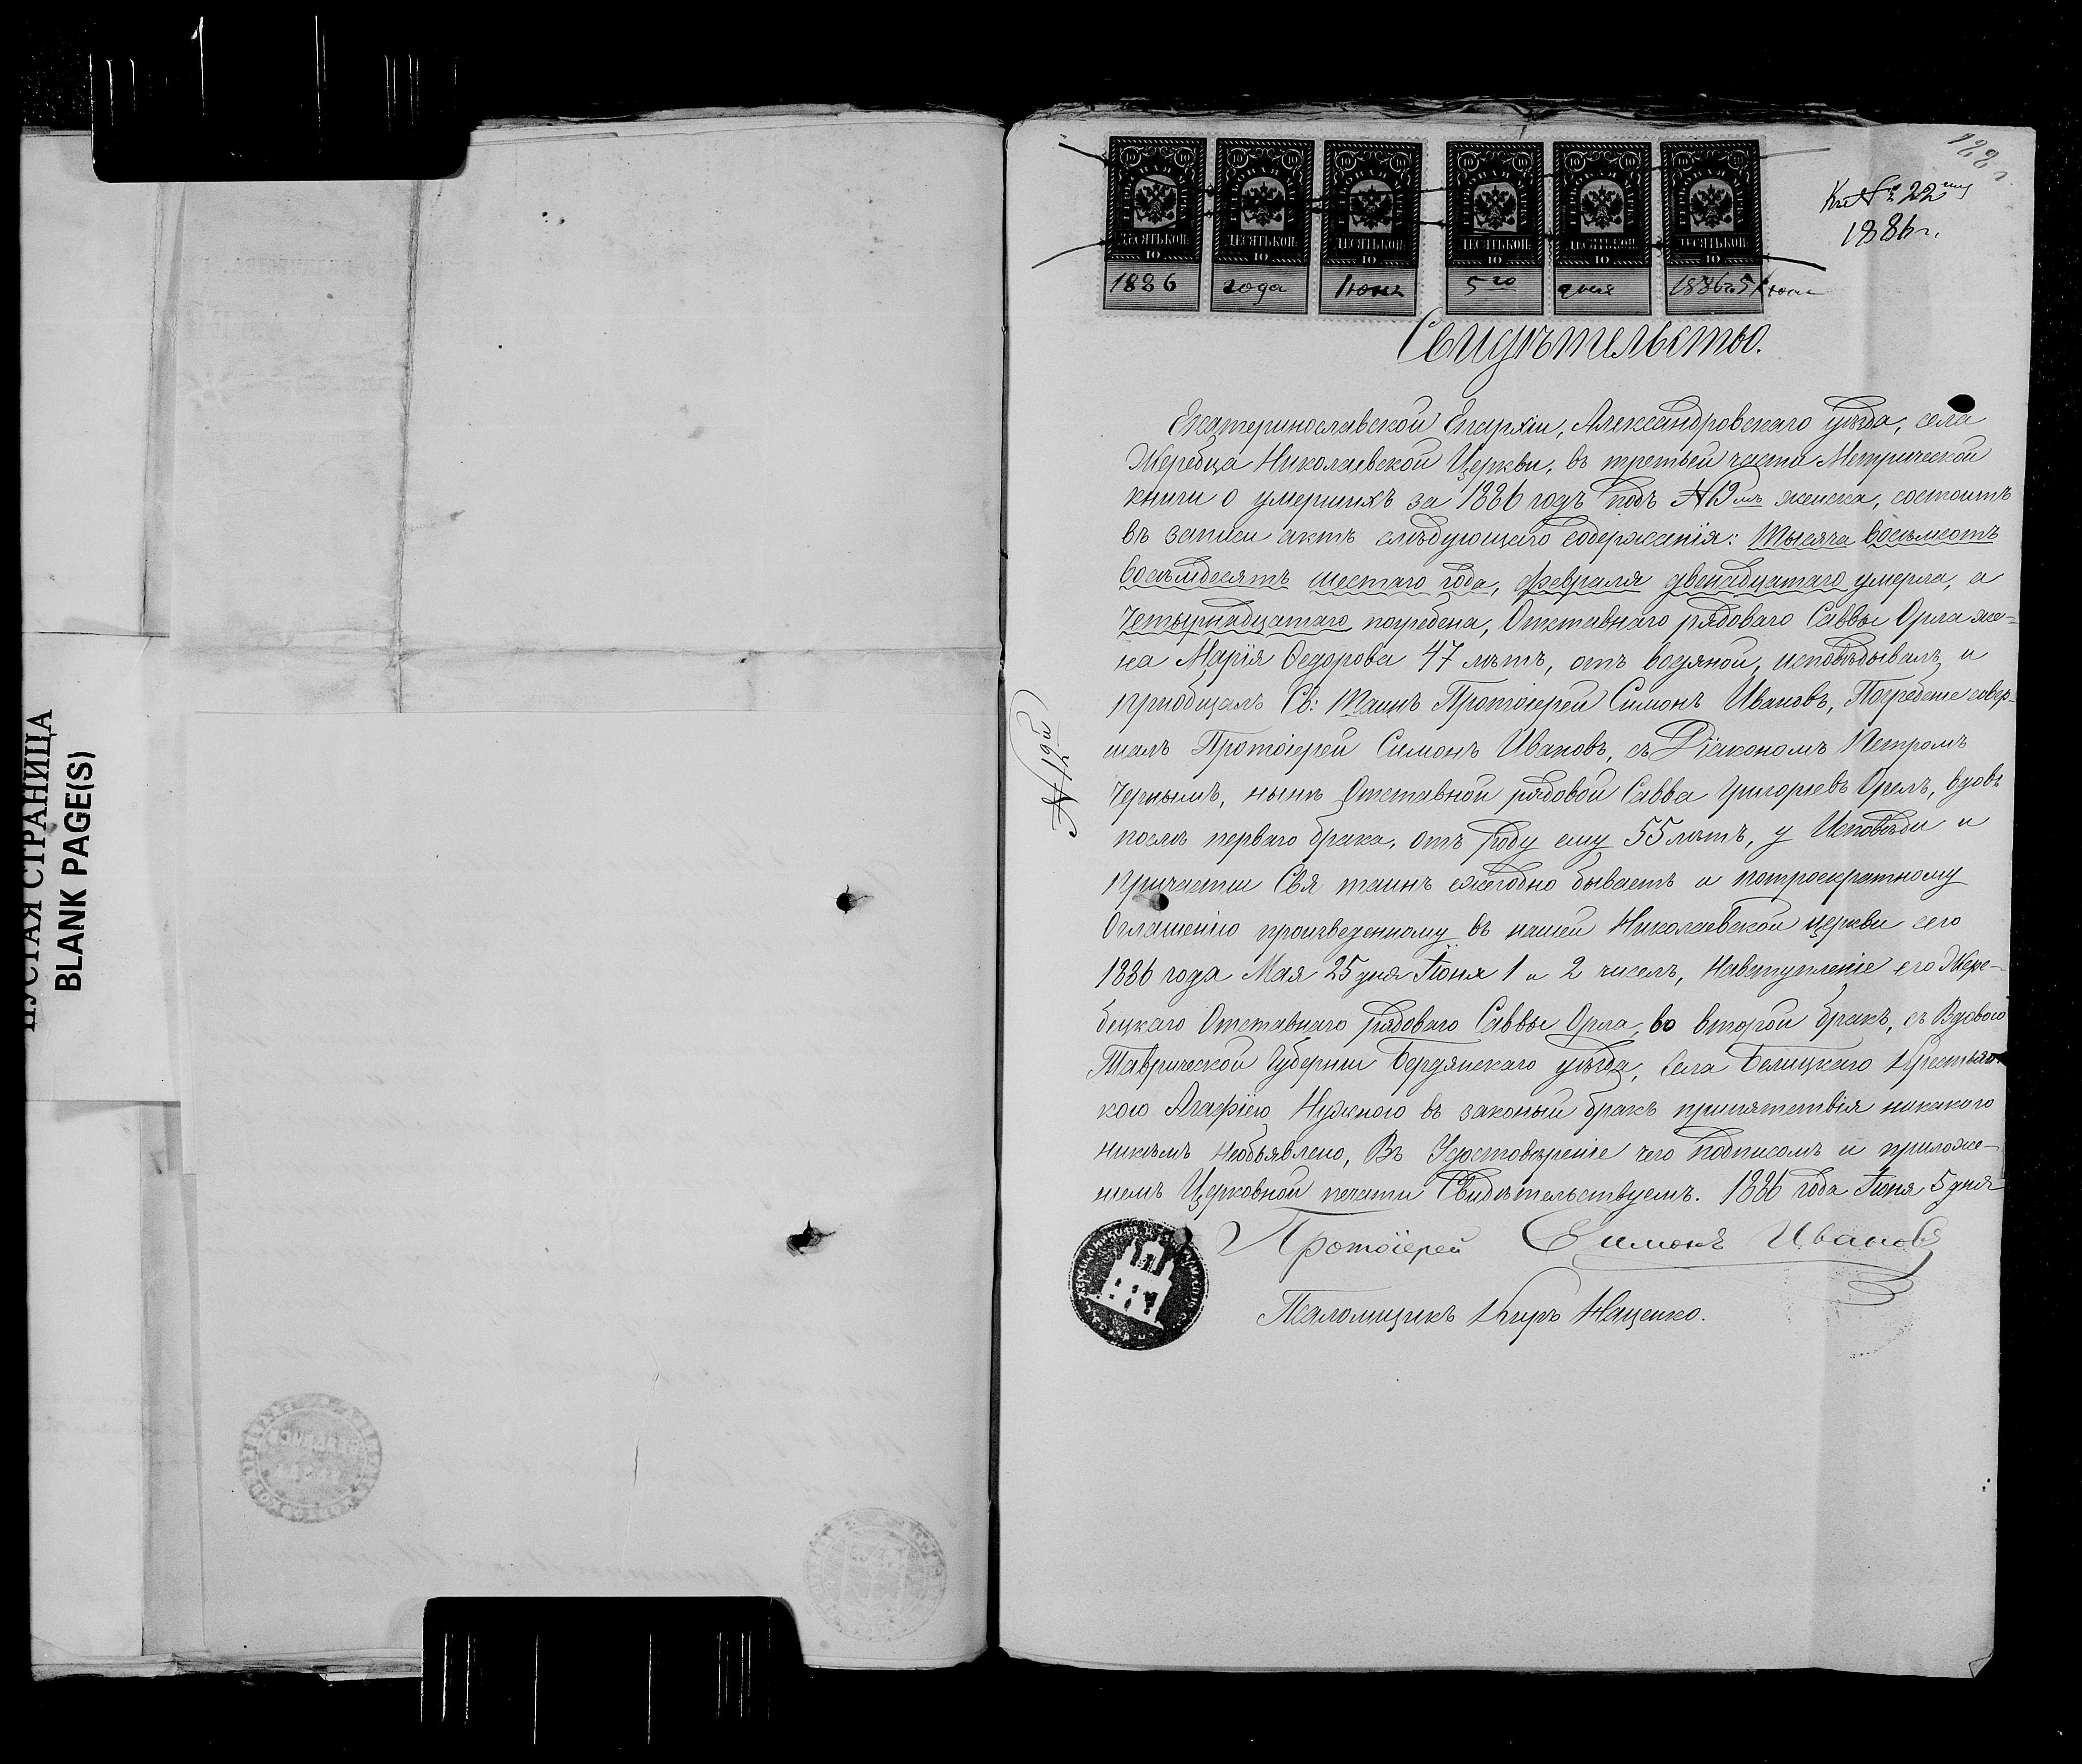 ПУСТАЯ СТРАНИЦА
BLANK PAGE(S)
188
Къ № 22
1886 г.
ГЕРБОВАЯ МАРКА ДЕСЯТЬ КОП: 10
ГЕРБОВАЯ МАРКА ДЕСЯТЬ КОП: 10
ГЕРБОВАЯ МАРКА ДЕСЯТЬ КОП: 10
ГЕРБОВАЯ МАРКА ДЕСЯТЬ КОП: 10
ГЕРБОВАЯ МАРКА ДЕСЯТЬ КОП: 10
ГЕРБОВАЯ МАРКА ДЕСЯТЬ КОП: 10
1886 года Іюня 5го дня 1886 г. 5 Іюня
Свидѣтельство.
Екатеринославской Епархіи, Александровскаго уѣзда, села
Жеребца Николаевской Церкви, въ третьей части Метрической
книги о умершихъ за 1886 годъ подъ № женска, состоитъ
въ записи актъ слѣдующаго содержанія: Тысяча восемьсотъ
восемьдесятъ шестаго года, февраля двенадцатаго умерла, а
четырнадцатаго погребена, Отставнаго рядоваго Саввы Орла же=
на Марія Ѳедорова 47 лѣтъ, отъ водяной, исповѣдывалъ и
пріобщалъ Св: Таинъ Протоіерей Симонъ Ивановъ, Погребеніе совер=
шалъ Протоіерей Симонъ Ивановъ, съ Діакономъ Петромъ
Чернымъ, нынѣ Отставной рядовой Савва Григорьевъ Орелъ, вдовъ
послѣ перваго брака, отъ роду ему 55 лѣтъ, у Исповѣди и
Причастіи Свя таинъ ежегодно бываетъ и потроекратному
Оглашенію произведенному въ нашей Николаевской церкви сего
1886 года Мая 25 дня Іюня 1 и 2 чиселъ, Навступленіе его Жере-
бецкаго Отставнаго рядоваго Саввы Орла, во второй бракъ, съ Вдовою
Таврической Губерніи Бердянскаго уѣзда, села Бѣлицкаго Крестьян
кою Агафіею Нужною въ законый бракъ припятствія никакого
никѣмъ необъявлено, Въ Удостовѣреніе чего подписомъ и приложе-
ніемъ Церковной печати Свидѣтельствуемъ. 1886 года Іюня 5 дня
Протоіерей Симонъ Ивановъ
Псаломщикъ Киръ Наценко.